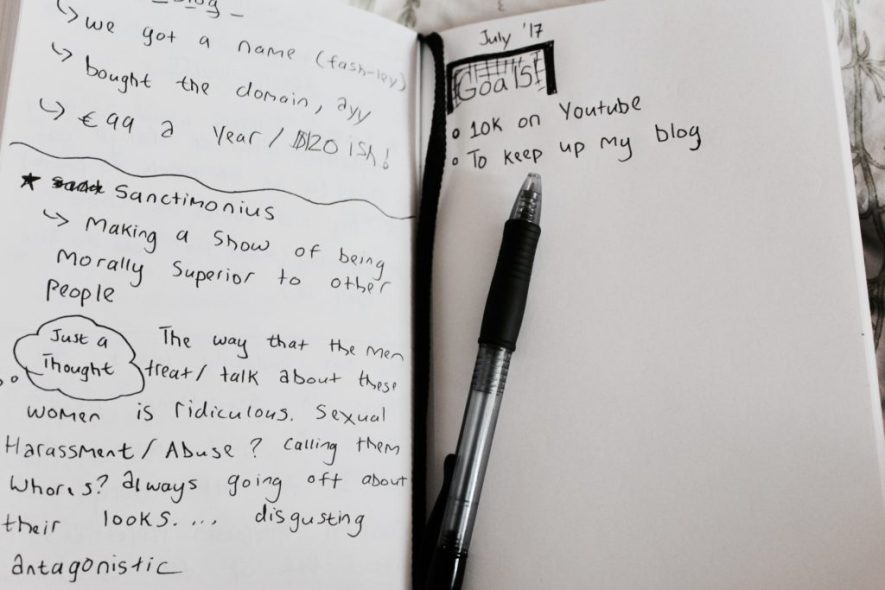 Blog
↳ we got a name (fash-ley)
↳ bought the domain, ayy
↳ €99 a year / $120 ish!
★ Sanctimonius
↳ Making a show of being
morally superior to other
people
Just a
Thought
The way that the men
treat / talk about these
women is ridiculous. Sexual
Harassment / Abuse? Calling them
whores? always going off about
their looks.... disgusting
antagonistic
July '17
Goals!
• 10K on Youtube
• To keep up my blog